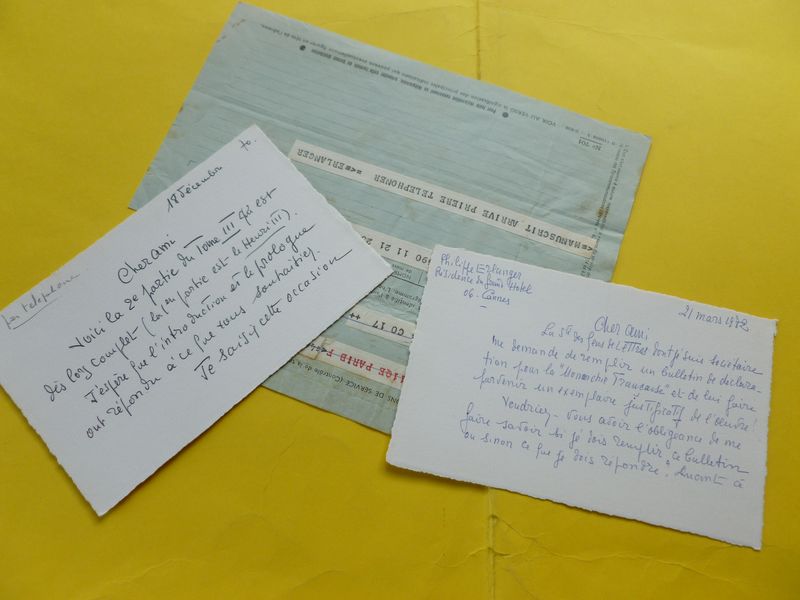 18 décembre 70.
par telephone
Cher ami
Voici la 2e partie du Tome III qui est
dès lors complet (la 1re partie est le Henri III).
J'espère que l'introduction et le prologue
ont répondu à ce que vous souhaitiez.
Je saisis cette occasion
N° 701
VOIR AU VERSO la signification des principales indications qui peuvent éventuellement figurer en tête de l'adresse.
MANUSCRIT ARRIVE PRIERE TELEPHONER =<==ERLANGER
090 11 21 20
CO 17 ++
PARIB F
NS DE SERVICE
Philippe Erlanger
Résidence du Grand Hotel
06 - Cannes
21 mars 1972.
Cher ami
La Sté des Gens de Lettres dont je suis sociétaire
me demande de remplir un bulletin de déclara-
tion pour la "Monarchie Française" et de lui faire
parvenir un exemplaire justificatif de l'oeuvre!
Voudriez-vous avoir l'obligeance de me
faire savoir si je dois remplir ce bulletin
ou sinon ce que je dois répondre. Quant à